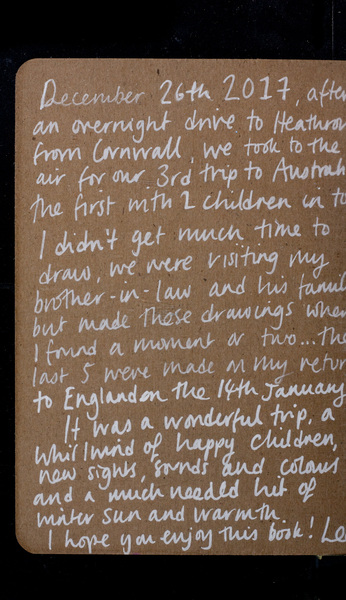 December 26th 2017, after
an overnight drive to Heathrow
from Cornwall, we took to the
air for our 3rd trip to Austral
the first with 2 children in to
I didn't get much time to
draw, we were visiting my
brother-in-law and his famil
but made these drawings when
I found a moment or two... The
last 5 were made on my return
to England on the 14th January
It was a wonderful trip, a
whirlwind of happy children,
new sights, sounds and colours
and a much needed hit of
winter sun and warmth
I hope you enjoy this book! Le